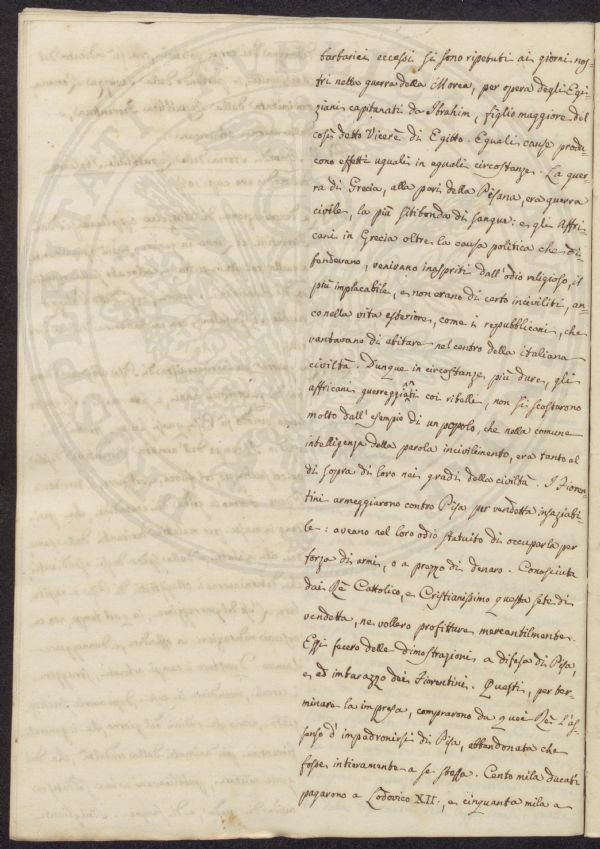 barbarici eccessi si sono ripetuti ai giorni nos-
tri nella guerra della Morea, per opera degli Egi-
ziani capitanati da Ibrahim, figlio maggiore del
così detto Vicerè di Egitto. Eguali cause produ-
cono effetti uguali in eguali circostanze. La guer
ra di Grecia, alla pari della Pisana, era guerra
civile, la più sitibonda di sangue: e gli Affri
cani in Grecia oltre la causa politica che di
fendevano, venivano inaspriti dall'odio religioso, il
più implacabile, e non erano di certo inciviliti, an-
co nella vita esteriore, come i repubblicani, che
vantavano di abitare nel centro della italiana
civiltà. Dunque in circostanze più dure, gli
affricani guerreggianti coi ribelli, non si scostarono
molto dall'esempio di un popolo, che nella comune
intelligenza della parola incivilimento, era tanto al
di sopra di loro nei gradi della civiltà. I Fioren-
tini armeggiarono contro Pisa per vendetta insaziabi-
le: aveano nel loro odio statuito di occuparla per
forza di armi, o a prezzo di denaro. Conosciuta
dai Rè Cattolico, e Cristianissimo questa sete di
vendetta, ne vollero profittare mercantilmente.
Essi fecero delle dimostrazioni a difesa di Pisa,
e ad imbarazzo dei Fiorentini. Questi, per ter-
minare la impresa, comprarono da quei Rè l'as-
senso d'impadronirsi di Pisa, abbandonata che
fosse intieramente a se stessa. Cento mila ducati
pagarono a Lodovico XII., e cinquanta mila a